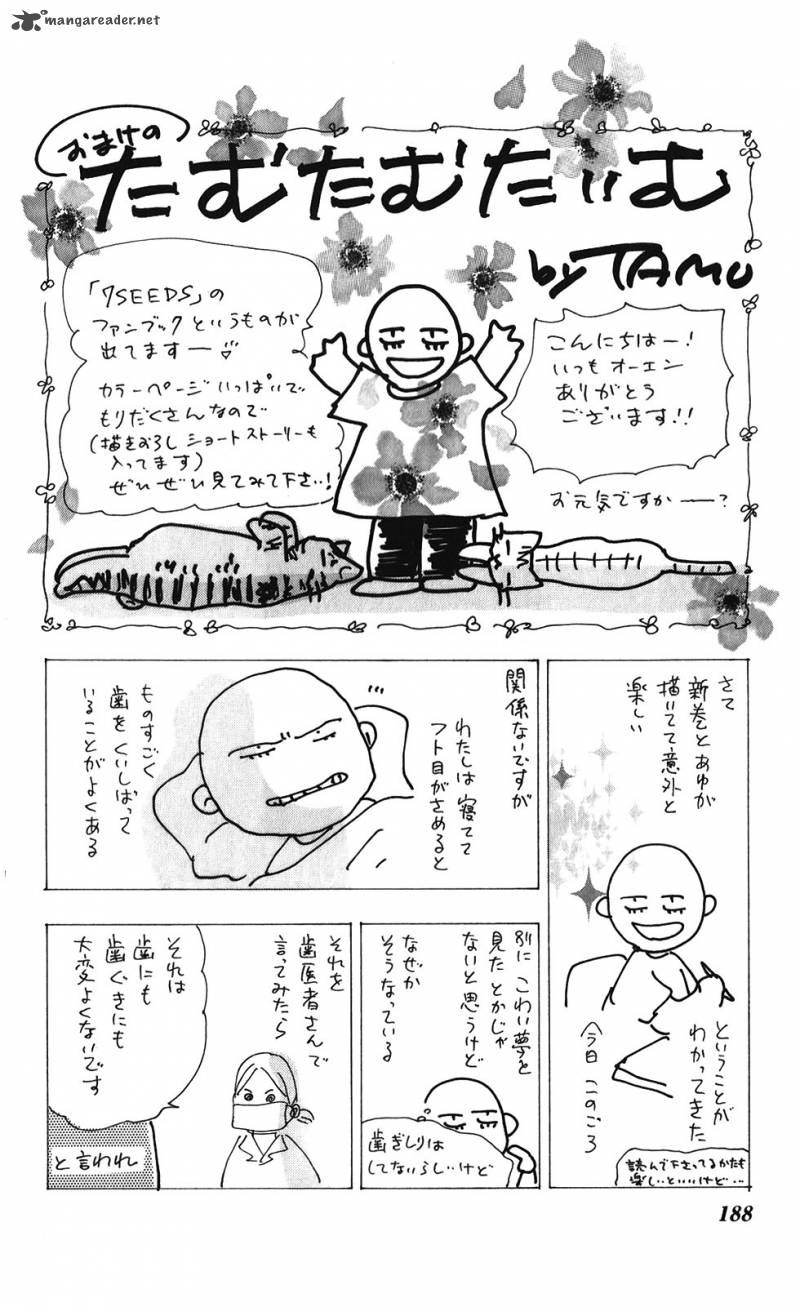 mangareader.net
おまけの
たむたむたいむ
by TAMU
こんにちはー!
いつも オーエン
ありがとう
ございます!!
お元気ですかー?
「7SEEDS」の
ファンブックというものが
出てますー♡
カラーページいっぱいで
もりだくさんなので
(描きおろし ショートストーリーも
入ってます)
ぜひぜひ見てみて下さい!
さて
新巻とあゆが
描いてて意外と
楽しい
ということが
わかってきた
今日このごろ
読んで下さってるかたも
楽しいといいけど…
関係ないですが
わたしは 寝てて
フト目がさめると
ものすごく
歯を くいしばって
いることがよくある
別に こわい夢を
見たとかじゃ
ないと思うけど
なぜか
そうなっている
歯ぎしりは
してないらしいけど
それを
歯医者さんで
言ってみたら
それは
歯にも
歯ぐきにも
大変よくないです
と言われ
188